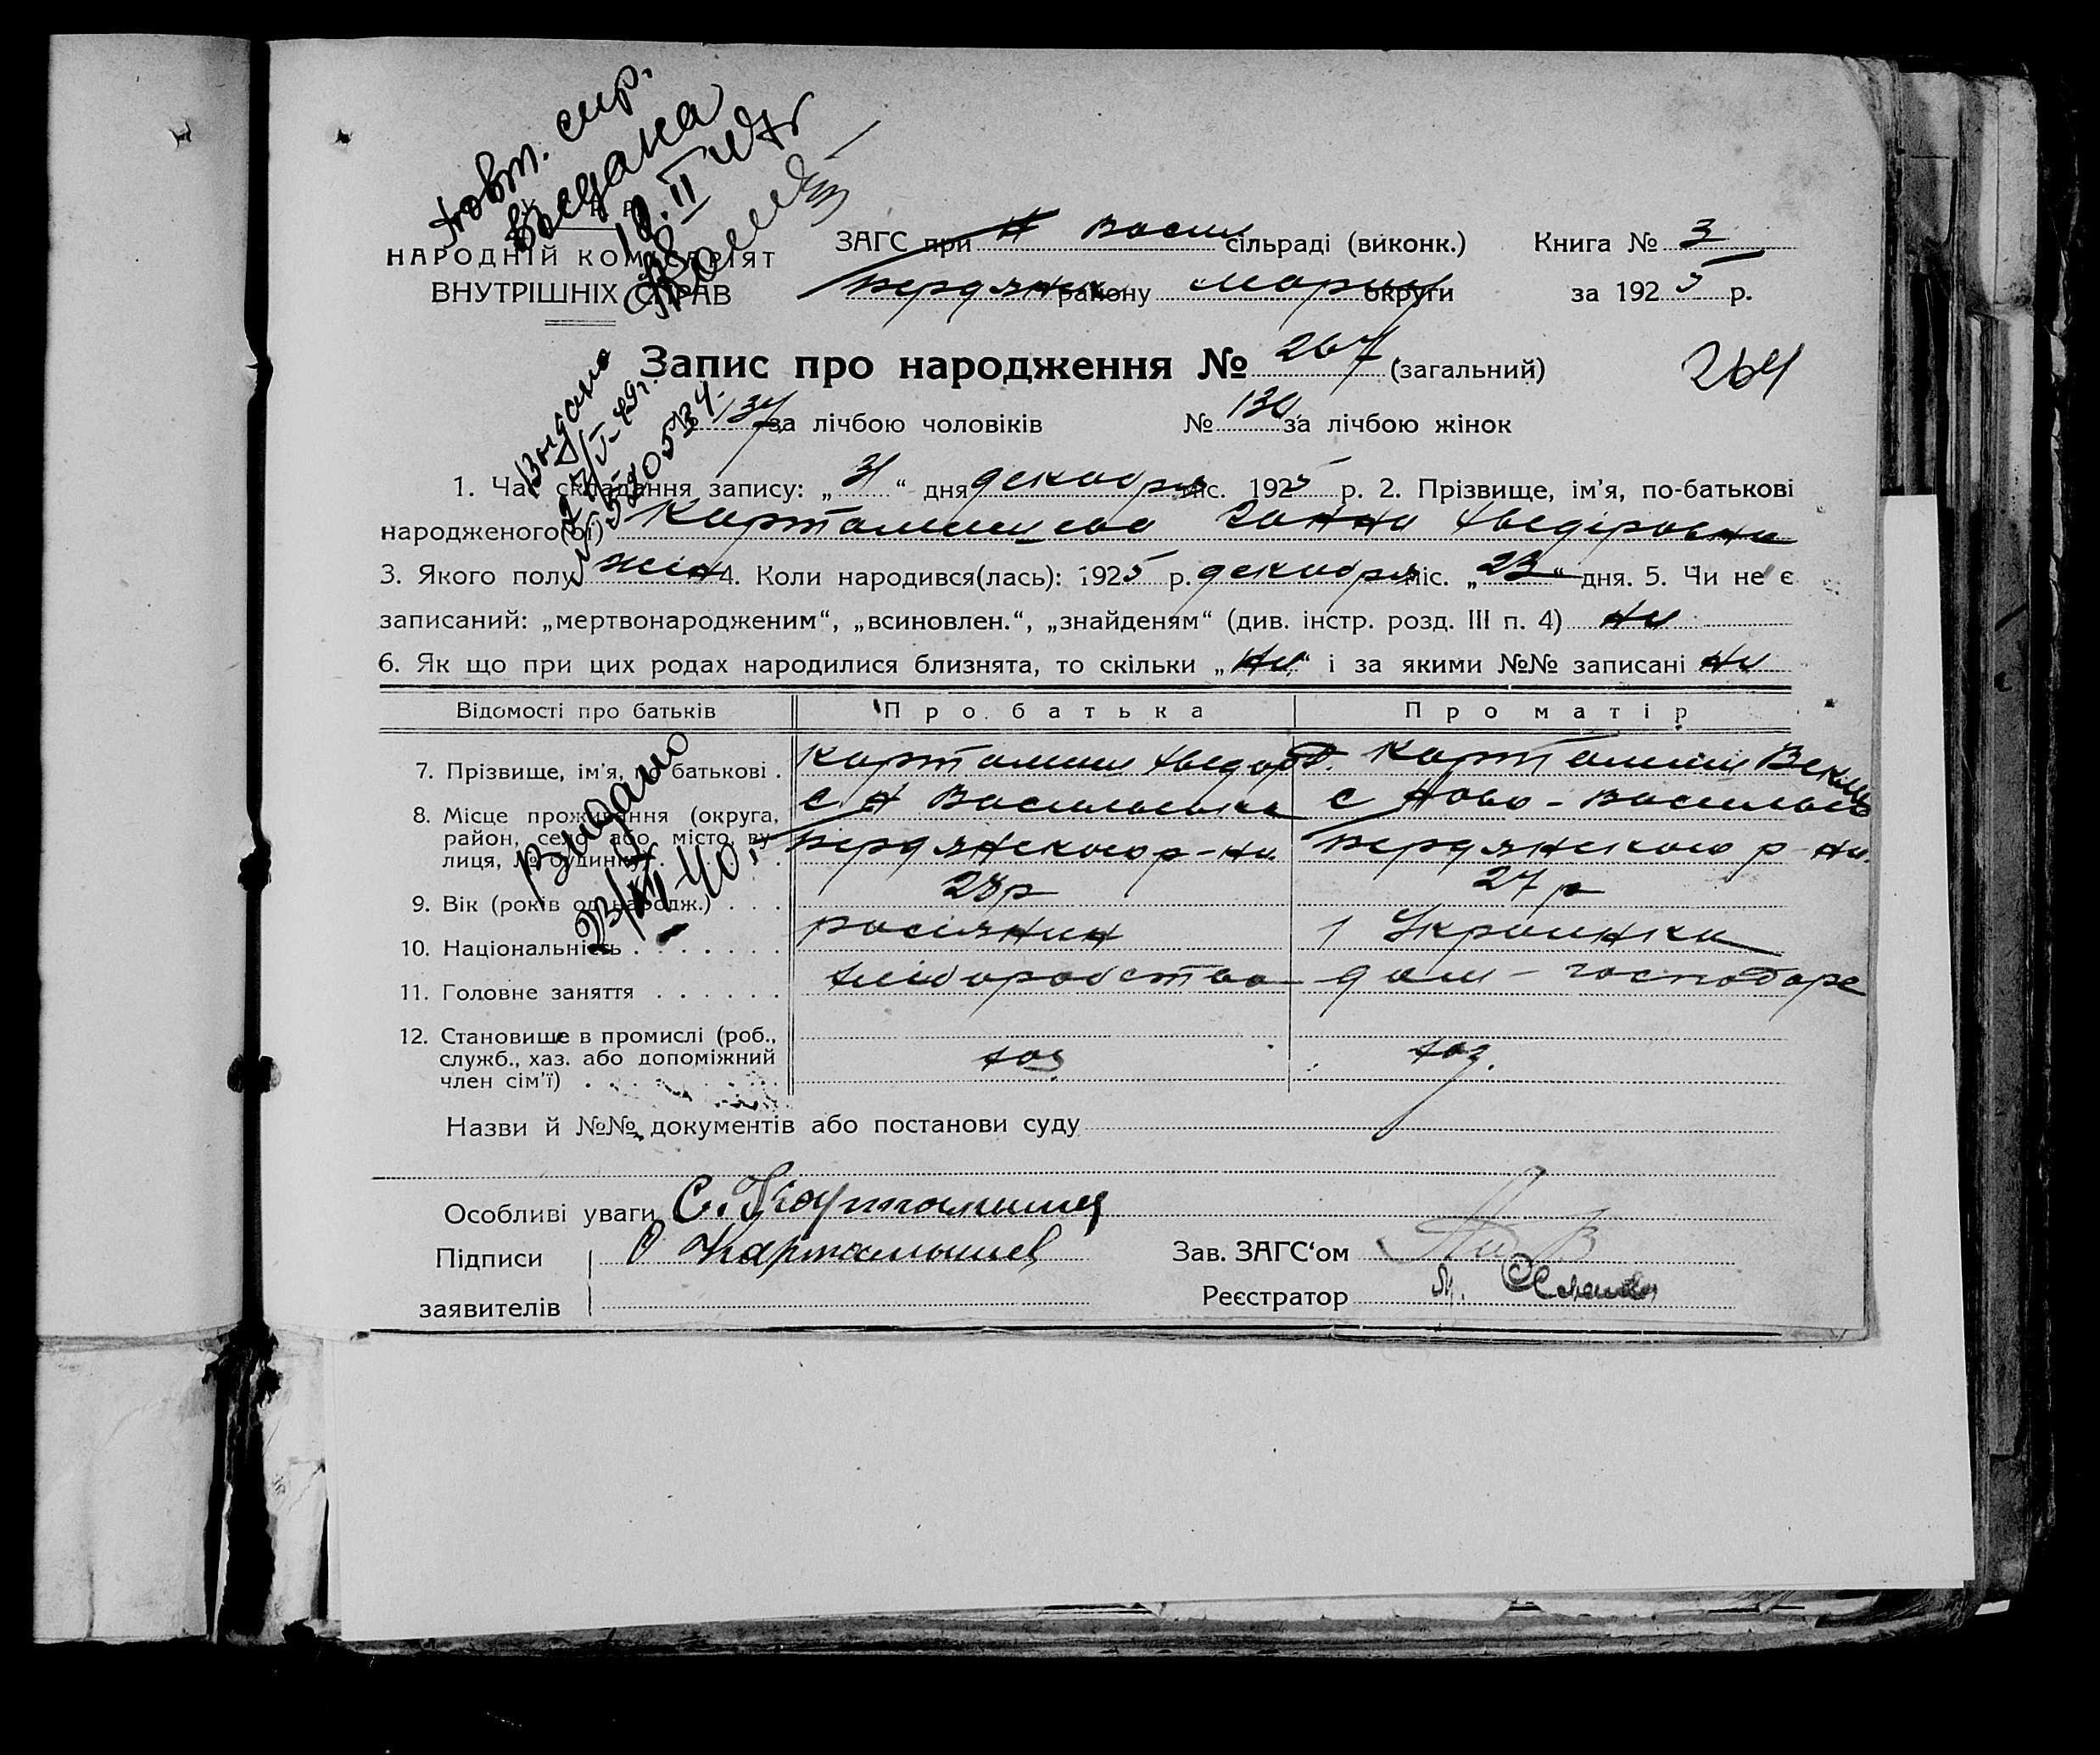 Повт. спр.
выдана
18.II
У. С. Р. Р.
НАРОДНІЙ КОМІСАРІЯТ
ВНУТРІШНІХ СПРАВ
ЗАГС при Н Васил сільраді (виконк.) Книга № 3
Бердянск району Мариуп округи за 1925 р.
Запис про народження № 267 (загальний) 264
№ 137 за лічбою чоловіків № 130 за лічбою жінок
Выдано
1. Час складання запису: „31“ дня декабря міс. 1925 р. 2. Прізвище, ім'я, по-батькові
народженого(ої) Карталишова Ганна Хведіровна
3. Якого полу жін 4. Коли народився(лась): 1925 р. декабря міс. „23“ дня. 5. Чи не є
записаний: „мертвонародженим“, „всиновлен.“, „знайденям“ (див. інстр. розд. III п. 4) ни
6. Як що при цих родах народилися близнята, то скільки „ни“ і за якими №№ записані ни
Відомості про батьків Про батька Про матір
7. Прізвище, ім'я, по батькові . Карталиш Хведор Карталиш
8. Місце проживання (округа, с Н Васильевка с Ново-Васильев
район, село або місто, ву-
лиця, № будинку) . . . Бердянского р-на Бердянского р-на
Выдано
23/XII-40.
9. Вік (років од народж.) . . . 28 р 27 р
10. Національність . . . . . . . росіянин Украинка
11. Головне заняття . . . . . . хліборобство дом-господаре
12. Становище в промислі (роб.,
служб., хаз. або допоміжний хоз хоз.
член сім'ї) . . . . . . . . .
Назви й №№ документів або постанови суду
Особливі уваги С. Карталишев
Підписи Карталышев Зав. ЗАГС'ом
заявителів Реєстратор